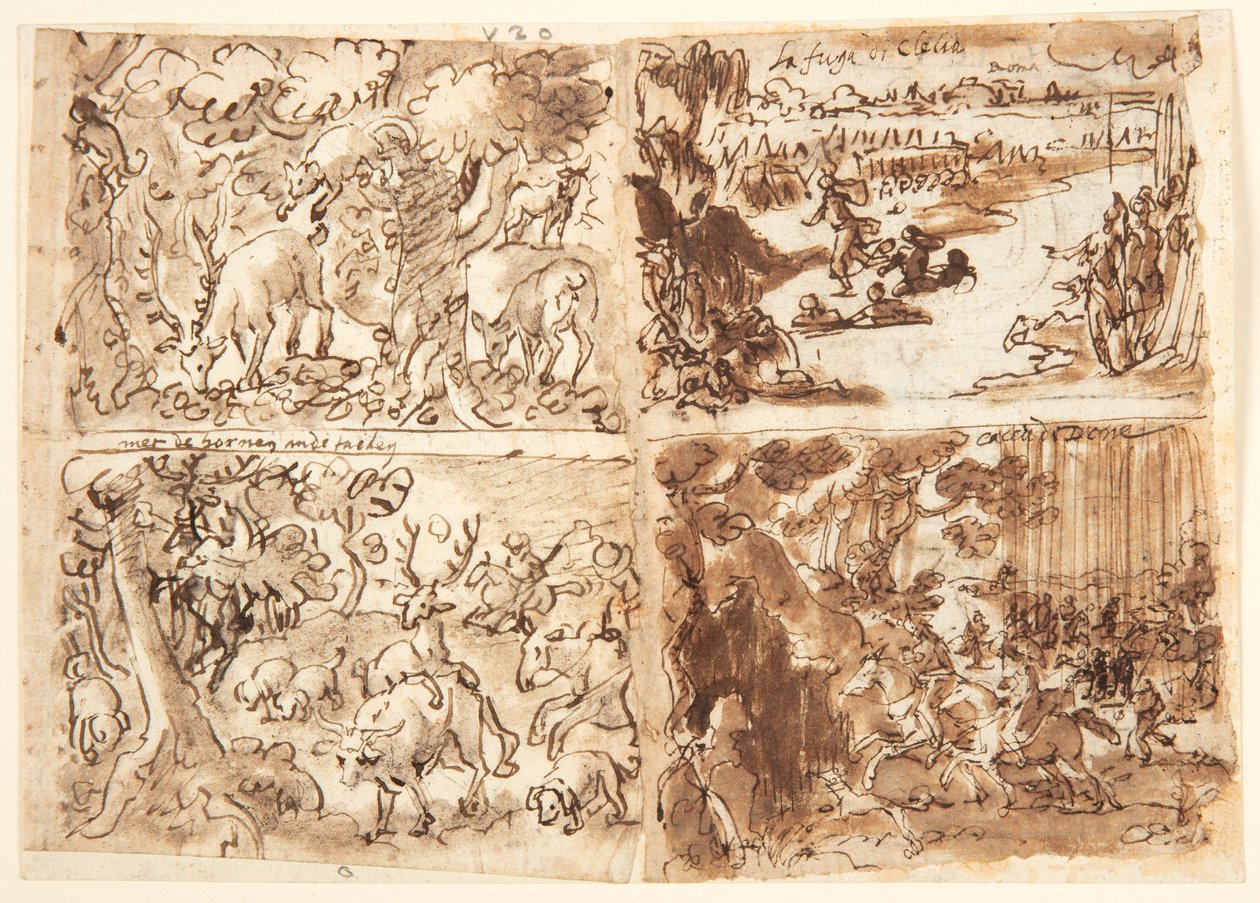 V30
La fuga di Clelia
Roma
met de hornen in de tacken
caccia di Done